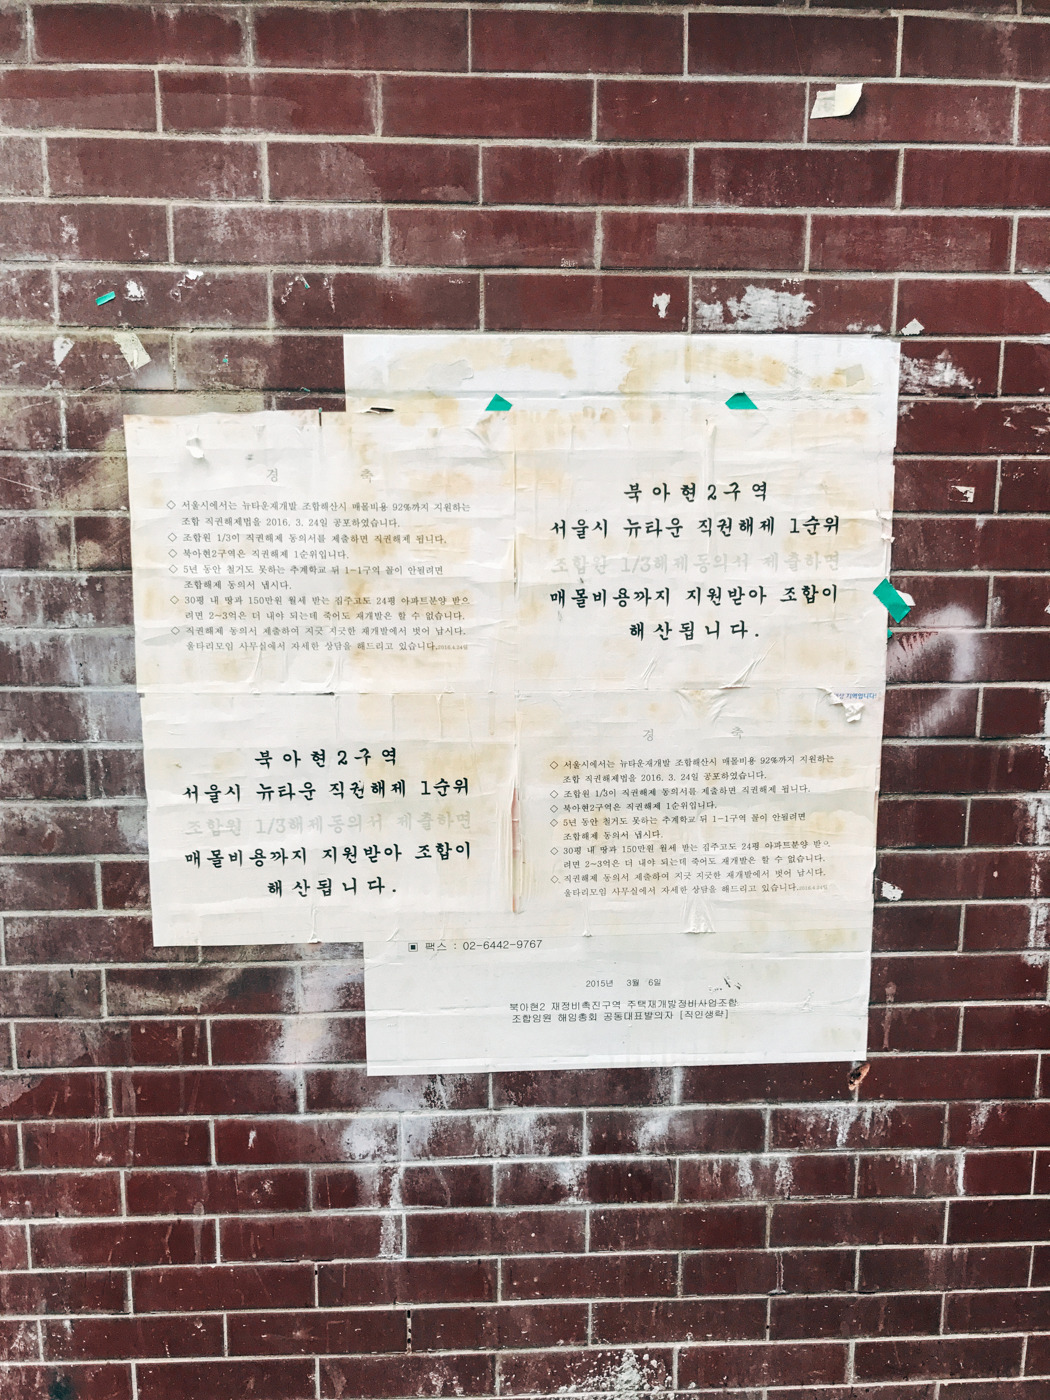 경 축
◇ 서울시에서는 뉴타운재개발 조합해산시 매몰비용 92%까지 지원하는
조합 직권해제법을 2016. 3. 24일 공포하였습니다.
◇ 조합원 1/3이 직권해제 동의서를 제출하면 직권해제 됩니다.
◇ 북아현2구역은 직권해제 1순위입니다.
◇ 5년 동안 철거도 못하는 추계학교 뒤 1-1구역 꼴이 안될려면
조합해제 동의서 냅시다.
◇ 30평 내 땅과 150만원 월세 받는 집주고도 24평 아파트분양 받으
려면 2~3억은 더 내야 되는데 죽어도 재개발은 할 수 없습니다.
◇ 직권해제 동의서 제출하여 지긋 지긋한 재개발에서 벗어 납시다.
울타리모임 사무실에서 자세한 상담을 해드리고 있습니다.2016.4.24일
북아현2구역
서울시 뉴타운 직권해제 1순위
조합원 1/3해제동의서 제출하면
매몰비용까지 지원받아 조합이
해산됩니다.
지역입니다!
북아현2구역
서울시 뉴타운 직권해제 1순위
조합원 1/3해제동의서 제출하면
매몰비용까지 지원받아 조합이
해산됩니다.
경 축
◇ 서울시에서는 뉴타운재개발 조합해산시 매몰비용 92%까지 지원하는
조합 직권해제법을 2016. 3. 24일 공포하였습니다.
◇ 조합원 1/3이 직권해제 동의서를 제출하면 직권해제 됩니다.
◇ 북아현2구역은 직권해제 1순위입니다.
◇ 5년 동안 철거도 못하는 추계학교 뒤 1-1구역 꼴이 안될려면
조합해제 동의서 냅시다.
◇ 30평 내 땅과 150만원 월세 받는 집주고도 24평 아파트분양 받으
려면 2~3억은 더 내야 되는데 죽어도 재개발은 할 수 없습니다.
◇ 직권해제 동의서 제출하여 지긋 지긋한 재개발에서 벗어 납시다.
울타리모임 사무실에서 자세한 상담을 해드리고 있습니다.2016.4.24일
▣ 팩스 : 02-6442-9767
2015년 3월 6일
북아현2 재정비촉진구역 주택재개발정비사업조합
조합임원 해임총회 공동대표발의자 [직인생략]